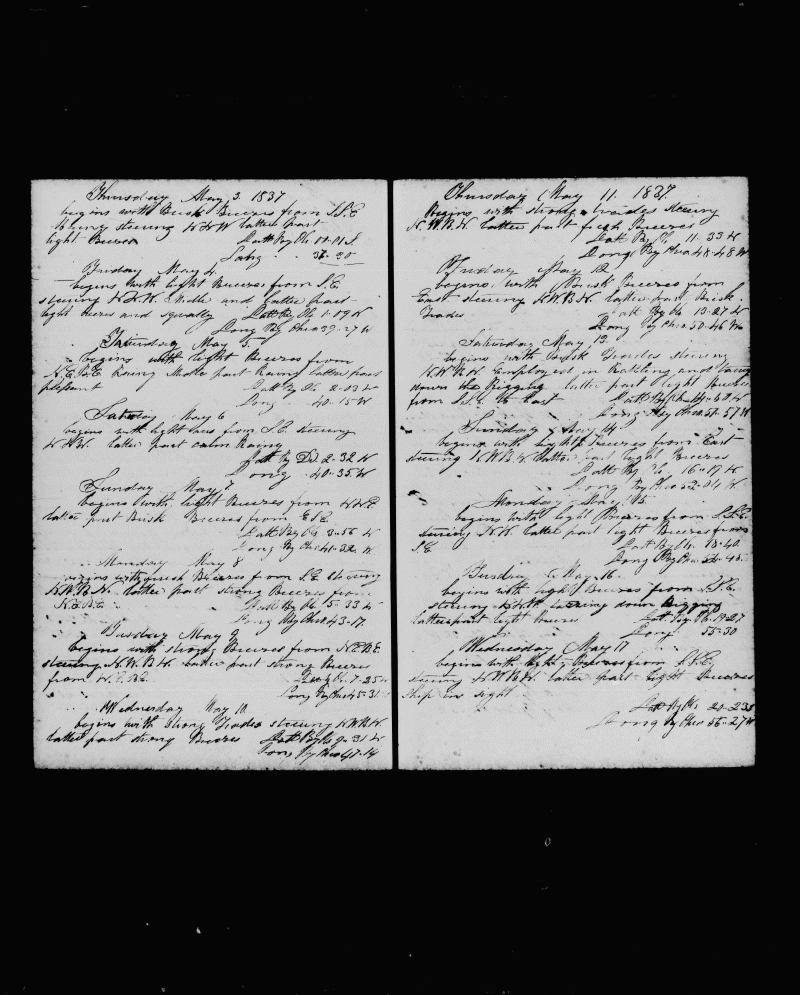 Thursday May 3 1837
begins with Brisk Breezes from S.S.E
steering N N W latter part
light Breezes Latt By Ob 01-01 S.
Long 37-20
Friday May 4
begins with light Breezes from S.E.
steering N.N.W. Midle and latter part
light and squally Latt By Ob 1-09 N
Long By Chro 39-27 W
Saturday May 5
begins with light Breezes from
N.E.B.E Rainy Midle part Rainy latter part
pleasant Latt By Ob 2-03 N
Long 40-15 W
Saturday May 6
begins with light from S.E. steering
N.W. latter part calm Rainy
Latt By 2-32 N
Long 40-35 W
Sunday May 7
begins with light Breezes from N.N.E
latter part Brisk Breezes from E S E
Latt By Ob 3-56 N
Long By Chro 41-32 W
Monday May 8
begins with Breezes from S.E. steering
N.W.B.N. latter part strong Breezes from
N.E.B.E. Latt By Ob 5-33 N
Long By Chro 43-17
Tusday May 9
begins with strong Breezes from N.E.B.E
steering N.W.B.N latter part strong Breezes
from N.E.B.E. Latt 7-25
Long By Chro 45-31
Wednesday May 10
begins with strong Trades steering N.W.B.N.
latter part strong Breezes Latt By Ob 9-31 N
Long By Chro 47-14
Thursday May 11. 1837.
Begins with strong trades steering
N.W.B.N. latter part fresh Breezes
Latt By Ob 11-33 N
Long By Chro 48-48 W
Friday May 12
begins with Brisk Breezes from
East steering N.W.B.N latter part Brisk
Trades Latt By Ob 13-27 N
Long By Chro 50-46 W
Saturday May 13
begins with Brisk Trades steering
N.W.B.N. Employed in Ratling and
down the Rigging latter part light Breezes
from S.S.E. to East Latt By Ob
Long By Chro 51-57 W
Sunday May 14
begins with light Breezes from East
steering N.W.B.N. latter part light Breezes
Latt By Ob 16-17 N
Long By Chro
Monday May 15
begins with light Breezes from S.S.E.
steering N.W. latter part light Breezes from
S.E. Latt By Ob 18-40
Long By Chro
Tusday May 16.
begins with light Breezes from S.E.
steering down Rigging
latter part light Breezes Latt By Ob 19-27
Long 55-30
Wednesday May 17
begins with light Breezes from S.S.E.
steering N.W.B.N. latter part light Breezes
ship in sight
Latt By Ob 20-23
Long By Chro 56-27 W